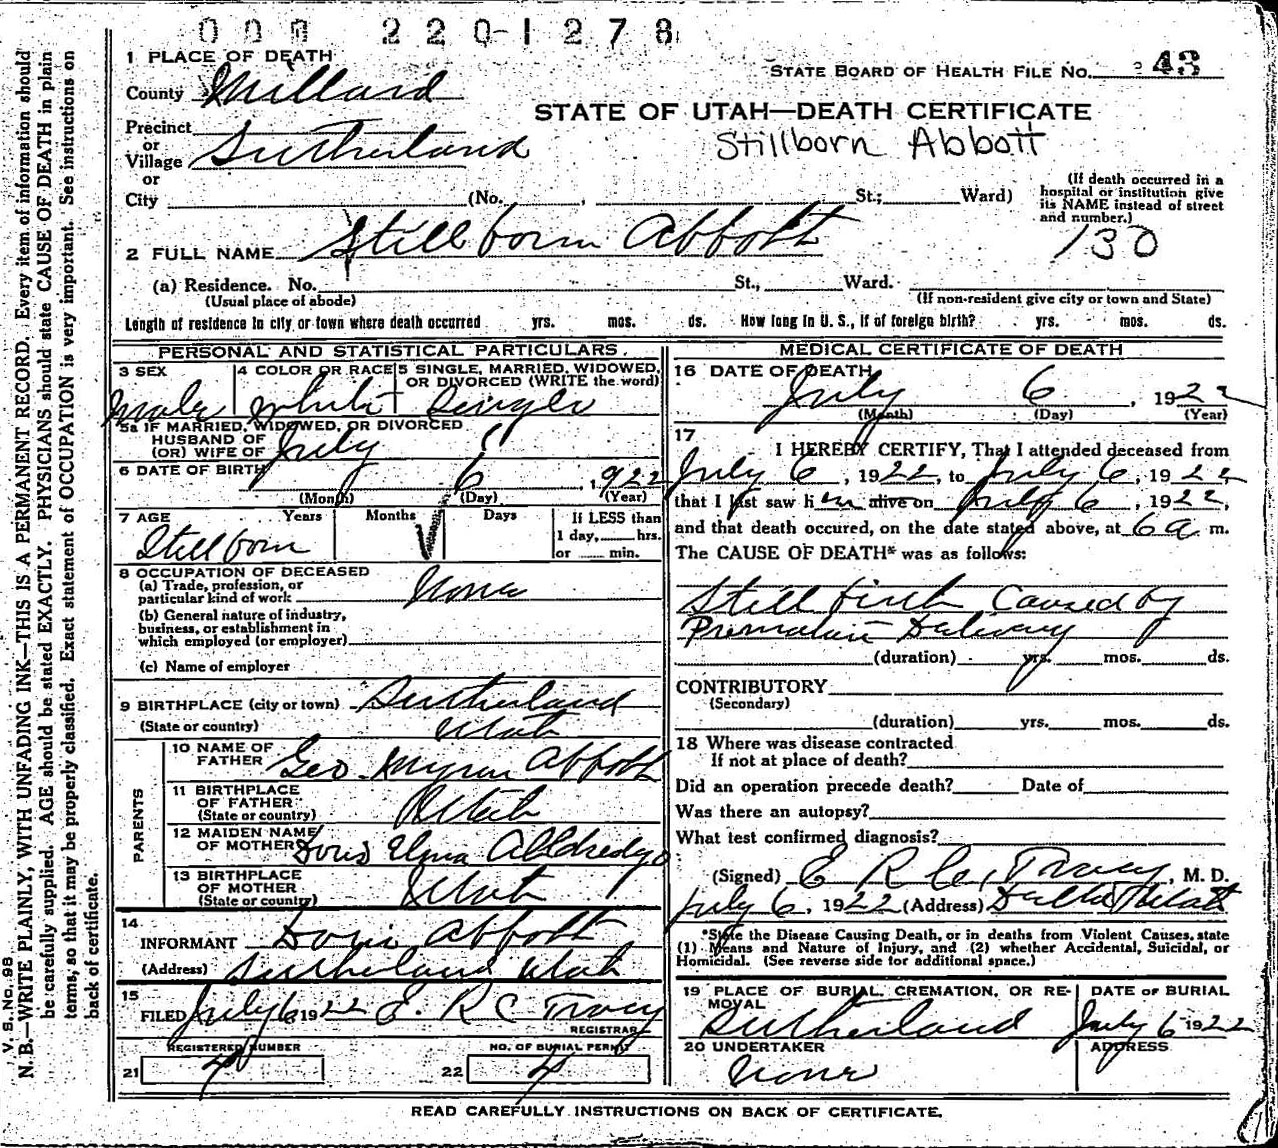 000 220-1278
1 PLACE OF DEATH
STATE BOARD OF HEALTH FILE NO. 43
County Millard
STATE OF UTAH—DEATH CERTIFICATE
Stillborn Abbott
Precinct
or
Village Sutherland
or
City (No. , St.; Ward)
(If death occurred in a
hospital or institution give
its NAME instead of street
and number.)
130
2 FULL NAME Stillborn Abbott
(a) Residence. No. St., Ward.
(Usual place of abode)
(If non-resident give city or town and State)
Length of residence in city or town where death occurred yrs. mos. ds. How long in U. S., if of foreign birth? yrs. mos. ds.
PERSONAL AND STATISTICAL PARTICULARS.
3 SEX
Male
4 COLOR OR RACE
White
5 SINGLE, MARRIED, WIDOWED,
OR DIVORCED (WRITE the word)
Single
5a IF MARRIED, WIDOWED, OR DIVORCED
HUSBAND OF
(OR) WIFE OF
6 DATE OF BIRTH July 6, 1922
(Month) (Day) (Year)
7 AGE Years Months Days
Stillborn
If LESS than
1 day, hrs.
or min.
8 OCCUPATION OF DECEASED
(a) Trade, profession, or
particular kind of work None
(b) General nature of industry,
business, or establishment in
which employed (or employer)
(c) Name of employer
9 BIRTHPLACE (city or town) Sutherland
(State or country) Utah
PARENTS
10 NAME OF
FATHER Geo. Myron Abbott
11 BIRTHPLACE
OF FATHER
(State or country) Utah
12 MAIDEN NAME
OF MOTHER Doris Elma Alldredge
13 BIRTHPLACE
OF MOTHER
(State or country) Utah
14
INFORMANT Doris Abbott
(Address) Sutherland Utah
15
FILED July 6 1922 E. R C Tracy
REGISTRAR
REGISTERED NUMBER
21 4
NO. OF BURIAL PERMIT
22 4
MEDICAL CERTIFICATE OF DEATH
16 DATE OF DEATH
July 6, 1922
(Month) (Day) (Year)
17
I HEREBY CERTIFY, That I attended deceased from
July 6, 1922, to July 6, 1922
that I last saw h im alive on July 6, 1922,
and that death occured, on the date stated above, at 6 a m.
The CAUSE OF DEATH* was as follows:
Still birth Caused by
Premature Delivery
(duration) yrs. mos. ds.
CONTRIBUTORY
(Secondary)
(duration) yrs. mos. ds.
18 Where was disease contracted
If not at place of death?
Did an operation precede death? Date of
Was there an autopsy?
What test confirmed diagnosis?
(Signed) E R C. Tracy, M. D.
July 6, 1922 (Address) Delta Utah
*State the Disease Causing Death, or in deaths from Violent Causes, state
(1) Means and Nature of Injury, and (2) whether Accidental, Suicidal, or
Homicidal. (See reverse side for additional space.)
19 PLACE OF BURIAL, CREMATION, OR RE-
MOVAL
Sutherland
DATE OF BURIAL
July 6 1922
20 UNDERTAKER
None
ADDRESS
READ CAREFULLY INSTRUCTIONS ON BACK OF CERTIFICATE.
V. S. No. 98
N. B.—WRITE PLAINLY, WITH UNFADING INK—THIS IS A PERMANENT RECORD. Every item of information should
be carefully supplied. AGE should be stated EXACTLY. PHYSICIANS should state CAUSE OF DEATH in plain
terms, so that it may be properly classified. Exact statement of OCCUPATION is very important. See instructions on
back of certificate.